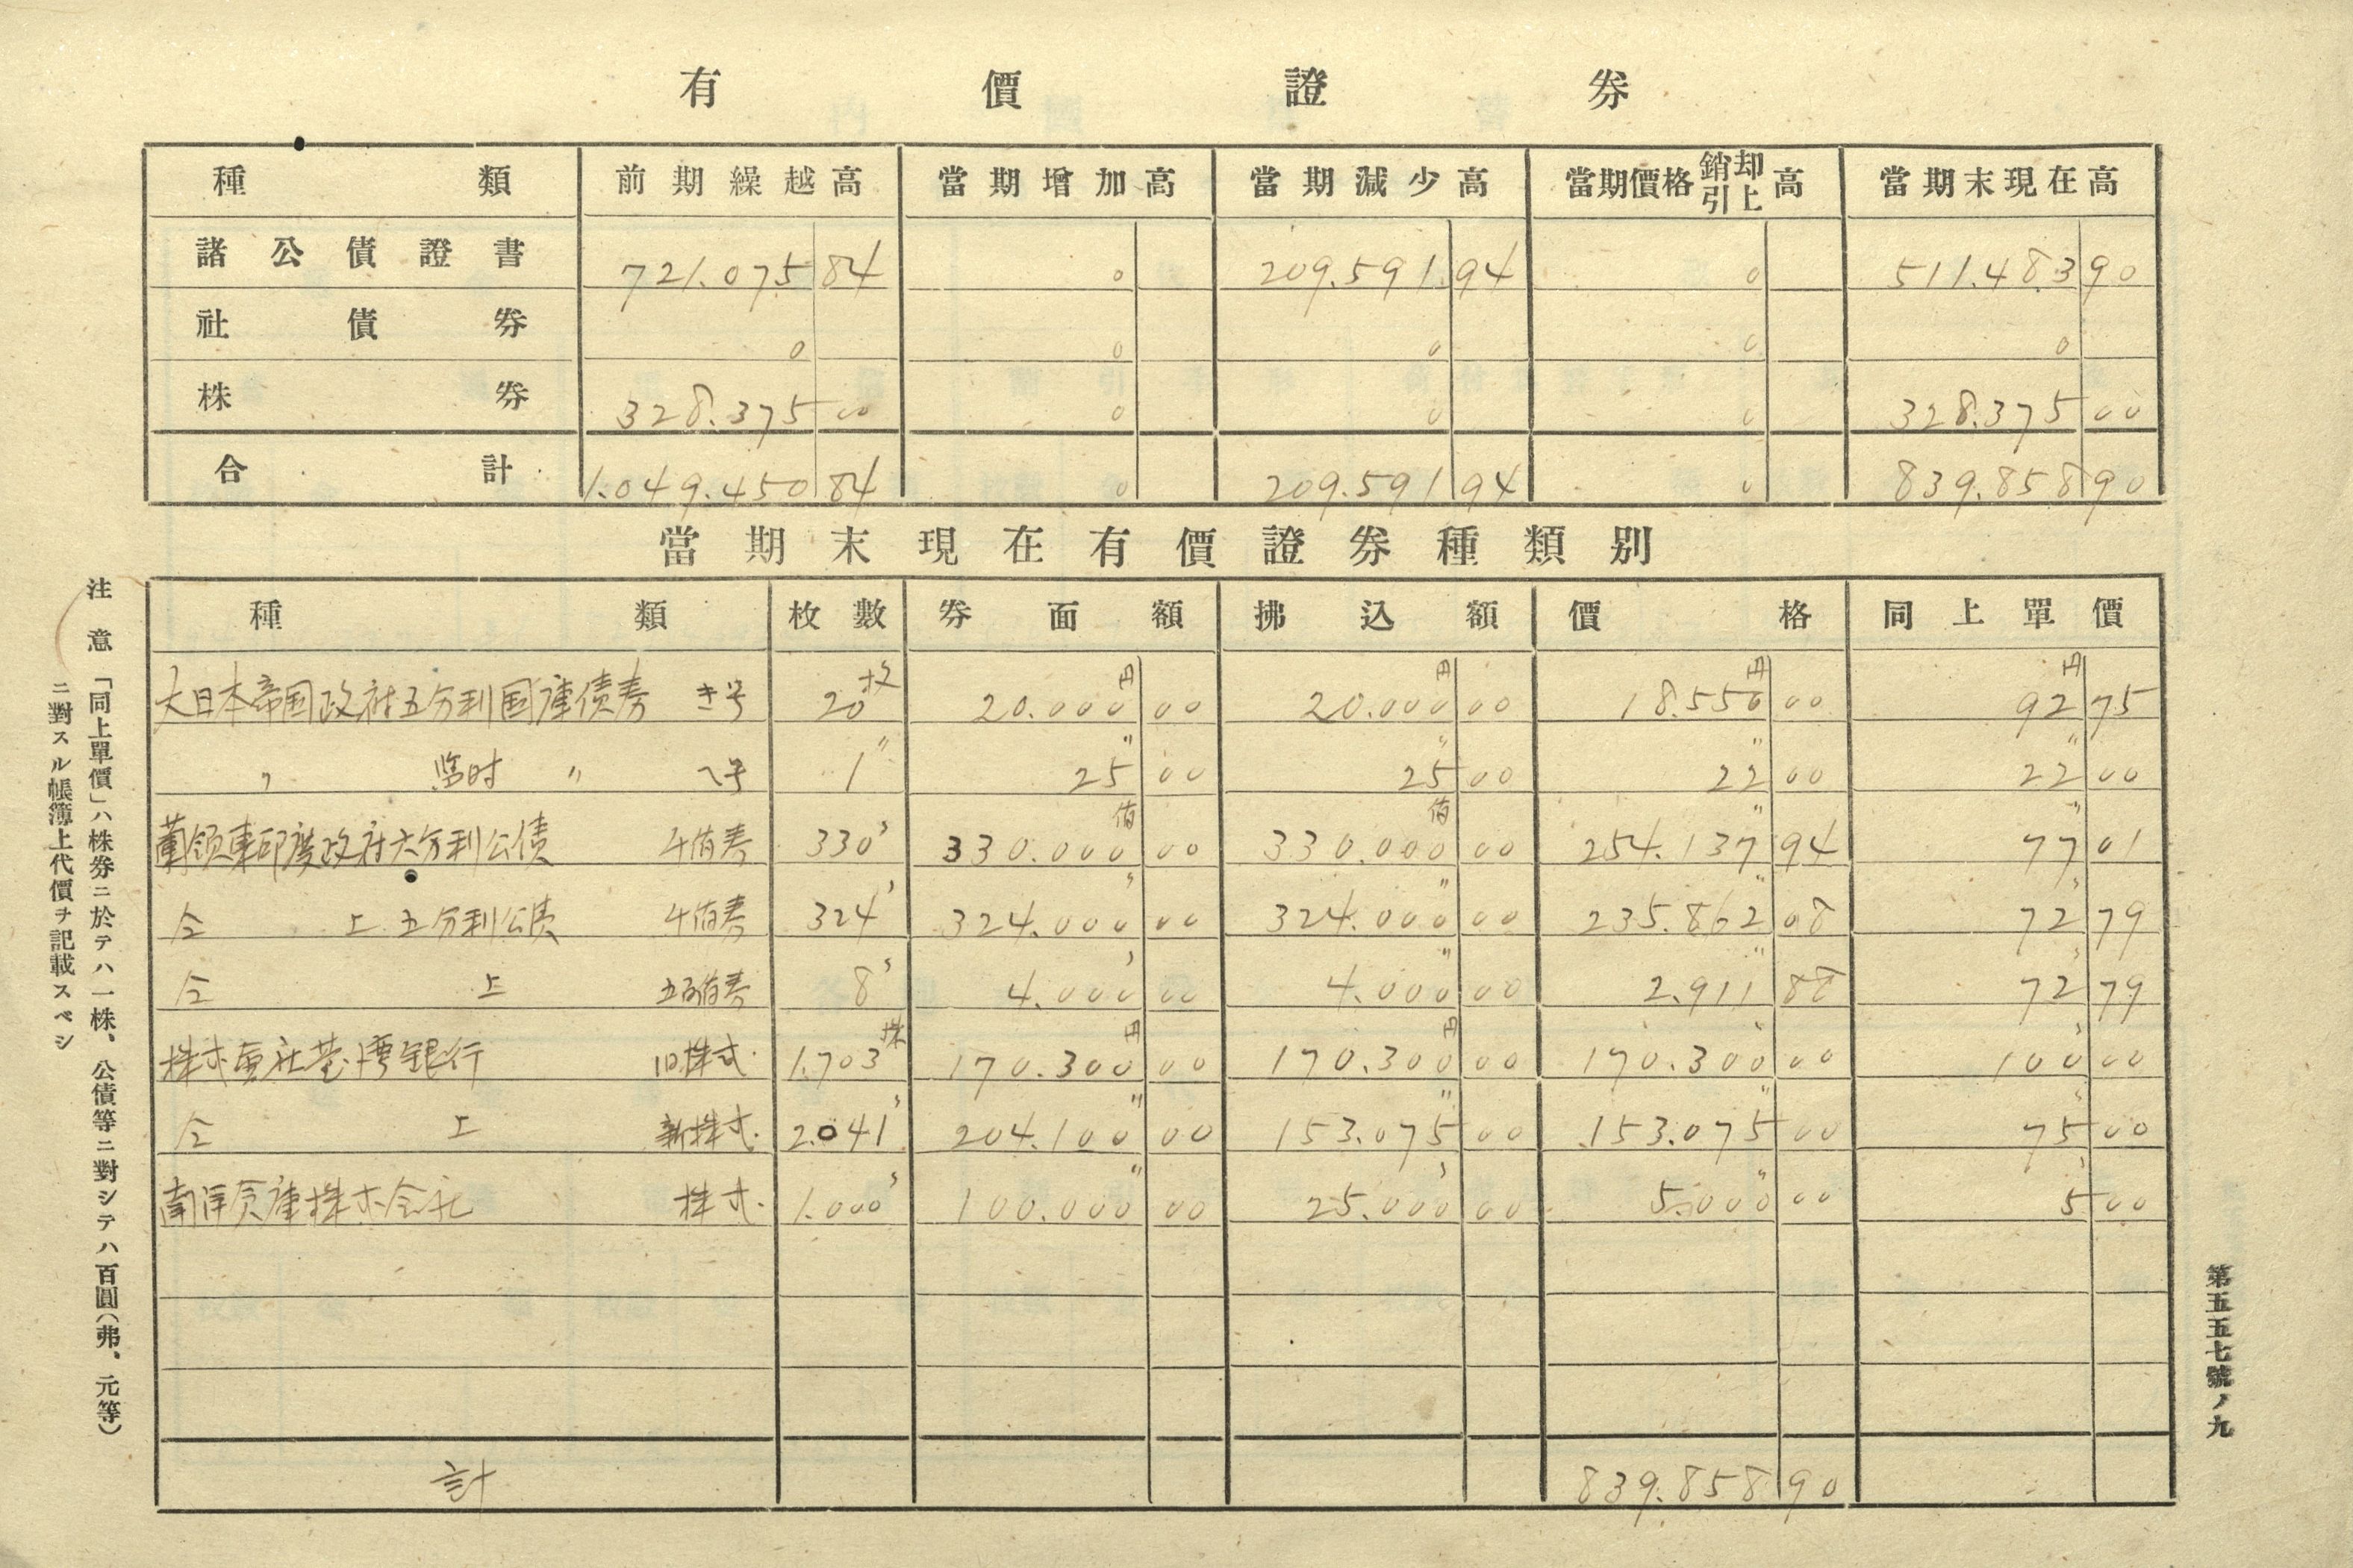 有價證券
種類 前期繰越高 當期增加高 當期減少高 當期價格銷却引上高 當期末現在高
諸公債證書 721.075 84 0 209.591.94 0 511.483 90
社債券 0 0 0 0 0
株券 328.375 00 0 0 0 328.375 00
合計 1.049.450 84 0 209.591 94 0 839.858 90
當期末現在有價證券種類別
種類 枚數 券面額 拂込額 價格 同上單價
大日本帝国政府五分利国庫債券 き号 20枚 20.000円 00 20.000円 00 18.550円 00 92円 75
〃 臨時 〃 へ号 1〃 25〃 00 25〃 00 22〃 00 22〃 00
蘭領東印度政府六分利公債 千盾券 330〃 330.000盾 00 330.000盾 00 254.137〃 94 77〃 01
仝上五分利公債 千盾券 324〃 324.000〃 00 324.000〃 00 235.862〃 08 72〃 79
仝上 五百盾券 8〃 4.000〃 00 4.000〃 00 2.911〃 88 72〃 79
株式會社臺湾銀行 旧株式. 1.703株 170.300円 00 170.300円 00 170.300〃 00 100〃 00
仝上 新株式. 2.041〃 204.100〃 00 153.075〃 00 153.075〃 00 75〃 00
南洋倉庫株式会社 株式. 1.000〃 100.000〃 00 25.000〃 00 5.000〃 00 5〃 00
計 839.858 90
注意 「同上單價」ハ株券ニ於テハ一株、公債等ニ對シテハ百圓(弗、元等)
ニ對スル帳簿上代價ヲ記載スベシ
第五五七號ノ九